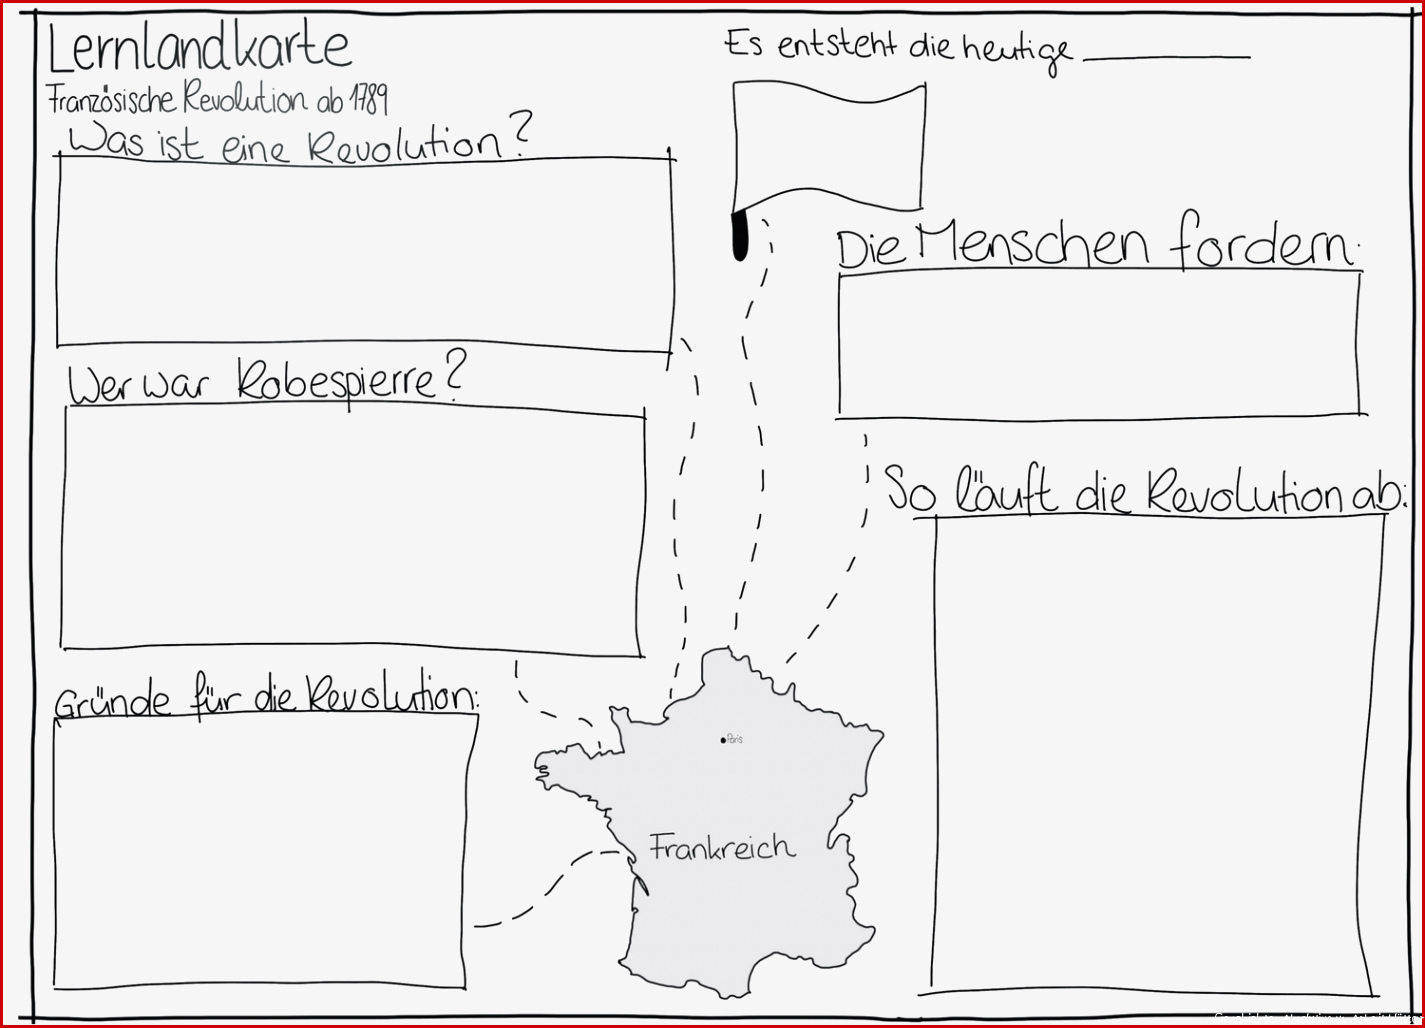 Lernlandkarte
Französische Revolution ab 1789
Was ist eine Revolution?
Wer war Robespierre?
Gründe für die Revolution:
Es entsteht die heutige __________
Die Menschen fordern:
So läuft die Revolution ab:
Paris
Frankreich